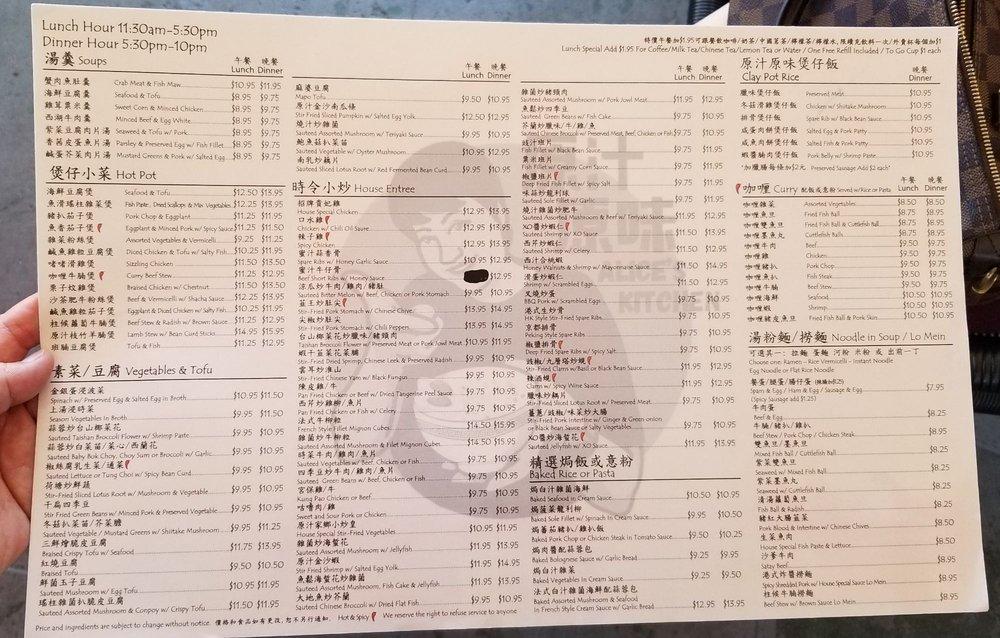 Lunch Hour 11:30am-5:30pm
Dinner Hour 5:30pm-10pm
特價午餐加$1.95可跟餐飲咖啡/奶茶/中國茗茶/檸檬茶/檸檬水, 限續充飲料一次/外賣杯每個加$1
Lunch Special Add $1.95 For Coffee/Milk Tea/Chinese Tea/Lemon Tea or Water / One Free Refill Included / To Go Cup $1 each
湯羹 Soups
午餐 晚餐
Lunch Dinner
蟹肉魚肚羹 Crab Meat & Fish Maw $10.95 $11.95
海鮮豆腐羹 Seafood & Tofu $8.95 $9.75
雞茸粟米羹 Sweet Corn & Minced Chicken $8.95 $9.75
西湖牛肉羹 Minced Beef & Egg White $8.95 $9.75
紫菜豆腐肉片湯 Seaweed & Tofu w/ Pork $8.95 $9.75
香茜皮蛋魚片湯 Parsley & Preserved Egg w/ Fish Fillet $8.95 $9.75
鹹蛋芥菜肉片湯 Mustard Greens & Pork w/ Salted Egg $8.95 $9.75
煲仔小菜 Hot Pot
海鮮豆腐煲 Seafood & Tofu $12.50 $13.95
魚滑瑤柱雜菜煲 Fish Paste, Dried Scallops & Mix Vegetables $12.25 $13.95
豬扒茄子煲 Pork Chop & Eggplant $11.25 $11.95
魚香茄子煲 Eggplant & Minced Pork w/ Spicy Sauce $11.25 $11.50
雜菜粉絲煲 Assorted Vegetables & Vermicelli $9.25 $11.25
鹹魚雞粒豆腐煲 Diced Chicken & Tofu w/ Salty Fish $10.25 $11.95
啫啫滑雞煲 Sizzling Chicken $11.50 $13.50
咖喱牛腩煲 Curry Beef Stew $11.25 $12.95
栗子炆雞煲 Braised Chicken w/ Chestnut $11.50 $13.50
沙茶肥牛粉絲煲 Beef & Vermicelli w/ Shacha Sauce $12.25 $13.95
鹹魚雞粒茄子煲 Eggplant & Diced Chicken w/ Salty Fish $10.25 $11.95
柱候蘿蔔牛腩煲 Beef Stew & Radish w/ Brown Sauce $11.25 $12.95
原汁枝竹羊腩煲 Lamb Stew w/ Bean Curd Sticks $14.95 $15.95
班腩豆腐煲 Tofu & Fish $11.25 $12.95
素菜/豆腐 Vegetables & Tofu
金銀蛋浸波菜
Spinach w/ Preserved Egg & Salted Egg in Broth $10.95 $11.50
上湯浸時菜
Season Vegetables in Broth $9.95 $11.50
蒜蓉炒台山椰菜
Sauteed Taishan Broccoli Flower w/ Shrimp Paste $9.95 $10.95
蒜蓉炒白菜苗/菜心/西蘭花
Sauteed Baby Bok Choy, Choy Sum or Broccoli w/ Garlic $9.95 $10.95
椒絲腐乳生菜/通菜
Sauteed Lettuce or Tung Choi w/ Spicy Bean Curd $9.95 $10.95
荷塘炒鮮蔬
Stir-Fried Sliced Lotus Root w/ Mushroom & Vegetable $9.95 $10.95
干扁四季豆
Stir Fried Green Beans w/ Minced Pork & Preserved Vegetable $9.95 $10.95
冬菇扒菜苗/芥菜膽
Sauteed Vegetable or Mustard Greens w/ Shiitake Mushroom $9.95 $11.25
三鮮燴脆皮豆腐
Braised Crispy Tofu w/ Seafood $11.75 $13.95
紅燒豆腐
Braised Tofu $9.50 $10.50
鮮菌玉子豆腐
Sauteed Mushroom w/ Egg Tofu $10.95 $11.95
瑤柱雜菌扒脆皮豆腐
Sauteed Assorted Mushroom & Conpoy w/ Crispy Tofu $11.50 $11.95
Price and ingredients are subject to change without notice. 價格和食品如有更改, 恕不另行通知. Hot & Spicy We reserve the right to refuse service to anyone
午餐 晚餐
Lunch Dinner
麻婆豆腐
Mapo Tofu $9.50 $10.95
原汁金沙南瓜條
Stir Fried Sliced Pumpkin w/ Salted Egg Yolk $12.50 $12.95
燒汁炒雜菌
Sauteed Assorted Mushroom w/ Teriyaki Sauce $9.95 $10.95
鮑魚菇小菜苗
Sauteed Vegetable w/ Oyster Mushroom $9.95 $10.95
南乳炒藕片
Sauteed Sliced Lotus Root w/ Red Fermented Bean Curd $9.95 $10.95
時令小炒 House Entree
招牌貴妃雞
House Special Chicken $12.95 $13.95
口水雞
Chicken w/ Chili Oil Sauce
辣子雞
Spicy Chicken $12.95 $13.95
蜜汁蒜香骨
Spare Ribs w/ Honey Garlic Sauce $10.95 $12.95
蜜汁牛仔骨
Beef Short Ribs w/ Honey Sauce $12.95
涼瓜炒牛肉/雞肉/豬肚
Sauteed Bitter Melon w/ Beef, Chicken or Pork Stomach $9.95 $10.95
韮王炒肚尖
Stir-Fried Pork Stomach w/ Chinese Chive $13.95 $14.95
尖椒炒肚尖
Stir-Fried Pork Stomach w/ Chili Peppers $13.95 $14.95
台山椰菜花炒臘味/豬頸肉
Taishan Broccoli Flower w/ Preserved Meat or Pork Jowl Meat $10.95 $11.95
蝦干韮菜花菜脯
Stir-Fried Dried Shrimp, Chinese Leek & Preserved Radish $9.95 $10.95
雲耳炒淮山
Stir-Fried Chinese Yam w/ Black Fungus $9.95 $10.95
陳皮雞/牛
Pan Fried Chicken or Beef w/ Dried Tangerine Peel Sauce $9.75 $10.95
西芹炒雞柳/魚片
Pan Fried Chicken or Fish w/ Celery $9.75 $10.50
法式牛柳粒
French Style Filet Mignon Cubes $14.50 $15.95
雜菌炒牛柳粒
Sauteed Assorted Mushroom & Filet Mignon Cubes $14.50 $15.95
時菜牛肉/雞肉/魚片
Sauteed Vegetables w/ Beef, Chicken or Fish $9.75 $10.95
四季豆炒牛肉/雞肉/魚片
Sauteed Green Beans w/ Beef, Chicken or Fish $9.75 $10.95
宮保雞/牛
Kung Pao Chicken or Beef $9.75 $10.95
咕嚕肉/雞
Sweet and Sour Pork or Chicken $9.75 $10.95
原汁家鄉小炒皇
House Special Stir-Fried Vegetables $10.95 $11.95
雜菌炒海蜇花
Sauteed Assorted Mushroom w/ Jellyfish $11.95 $13.95
原汁金沙蝦
Stir Fried Shrimp w/ Salted Egg Yolk $11.95 $14.95
魚鬆海蜇花炒雜菌
Sauteed Assorted Mushroom, Fish Cake & Jellyfish $11.95 $13.95
大地魚炒芥蘭
Sauteed Chinese Broccoli w/ Dried Flat Fish $9.95 $10.95
午餐 晚餐
Lunch Dinner
雜菌炒豬頸肉
Sauteed Assorted Mushroom w/ Pork Jowl Meat $11.95 $12.95
魚鬆炒四季豆
Sauteed Green Beans w/ Fish Cake $9.75 $10.95
芥蘭炒臘味/牛/雞/魚
Sauteed Chinese Broccoli w/ Preserved Meat, Beef, Chicken or Fish $9.75 $10.95
豉汁班片
Fish Fillet w/ Black Bean Sauce $9.75 $10.95
粟米班片
Fish Fillet w/ Creamy Corn Sauce $9.75 $10.95
椒鹽班片
Deep Fried Fish Fillet w/ Spicy Salt $9.75 $10.95
味菇炒龍利球
Sauteed Sole Fillet w/ Garlic $11.95 $12.95
燒汁雜菌炒肥牛
Sauteed Assorted Mushroom & Beef w/ Teriyaki Sauce $11.95 $12.95
XO醬炒蝦仁
Sauteed Shrimp w/ XO Sauce $11.50 $13.95
西芹炒蝦仁
Sauteed Shrimp w/ Celery $11.50 $12.95
西汁合桃蝦
Honey Walnuts & Shrimp w/ Mayonnaise Sauce $11.50 $14.95
滑蛋炒蝦仁
Shrimp w/ Scrambled Eggs $11.50 $12.95
叉燒炒蛋
BBQ Pork w/ Scrambled Eggs $9.75 $10.95
港式生炒骨
HK Style Stir-Fried Spare Ribs $9.75 $10.95
京都排骨
Peking Style Spare Ribs $9.75 $10.95
椒鹽排骨
Deep Fried Spare Ribs w/ Spicy Salt $9.75 $10.95
豉椒/九層塔炒蜆
Stir-Fried Clams w/ Basil or Black Bean Sauce $11.95 $12.95
辣酒蜆
Clams w/ Spicy Wine Sauce $11.95 $12.95
臘味炒藕片
Stir-Fried Sliced Lotus Root w/ Preserved Meat $9.75 $10.95
薑蔥/豉椒/味菜炒大腸
Stir-Fried Pork Intestine w/ Ginger & Green onion
or Black Bean Sauce or Salty Vegetables $9.75 $10.95
XO醬炒海蜇花
Sauteed Jellyfish w/ XO Sauce $11.95 $13.95
精選焗飯或意粉
Baked Rice or Pasta
焗白汁雜菌海鮮
Baked Seafood in Cream Sauce $10.50 $10.95
焗菠菜龍利柳
Baked Sole Fillet w/ Spinach in Cream Sauce $9.50 $10.95
焗蕃茄豬扒/雞扒飯
Baked Pork Chop or Chicken Steak in Tomato Sauce $9.50 $10.25
焗肉醬配蒜蓉包
Baked Bolognese Sauce w/ Garlic Bread $9.25 $9.95
焗白汁雜菜
Baked Vegetables in Cream Sauce $9.25 $9.50
法式白汁雜菌海鮮配蒜蓉包
Baked Assorted Mushroom & Seafood
in French Style Cream Sauce w/ Garlic Bread $12.95 $13.95
原汁原味煲仔飯
Clay Pot Rice
午餐 晚餐
Lunch Dinner
臘味煲仔飯 Preserved Meat $10.95
冬菇滑雞煲仔飯 Chicken w/ Shiitake Mushroom $10.95
排骨煲仔飯 Spare Rib w/ Black Bean Sauce $10.95
咸蛋肉餅煲仔飯 Salted Egg & Pork Patty $10.95
咸魚肉餅煲仔飯 Salted Fish & Pork Patty $10.95
蝦醬腩肉煲仔飯 Pork Belly w/ Shrimp Paste $10.95
*加臘腸每條加$2元 Preserved Sausage Add $2 each*
咖喱 Curry 配飯或意粉 Served w/Rice or Pasta
午餐 晚餐
Lunch Dinner
咖喱雜菜 Assorted Vegetables $8.50 $8.50
咖喱魚旦 Fried Fish Ball $8.75 $8.95
咖喱雙魚旦 Fried Fish Ball & Cuttlefish Ball $8.75 $8.95
咖喱墨魚丸 Cuttlefish Balls $8.75 $8.95
咖喱牛肉 Beef $9.50 $9.50
咖喱雞 Chicken $9.50 $9.50
咖喱豬扒 Pork Chop $9.75 $9.75
咖喱魚扒 Fish Steak $9.75 $9.75
咖喱牛腩 Beef Stew $9.50 $9.50
咖喱海鮮 Seafood $10.50 $10.50
咖喱蝦 Shrimp $10.50 $10.95
咖喱豬皮魚旦 Fried Fish Ball & Pork Skin $10.50 $10.95
湯粉麵/撈麵 Noodle in Soup / Lo Mein
可選其一: 拉麵 蛋麵 河粉 米粉 或 出前一丁
Choose one: Ramen - Rice Vermicelli - Instant Noodle
Egg Noodle or Flat Rice Noodle
餐蛋/腿蛋/腸仔蛋
Spam & Egg / Ham & Egg / Sausage & Egg $7.95
(Spicy Sausage add $1.25)
牛肉蛋
Beef & Egg $8.25
牛腩/豬扒/雞扒
Beef Stew / Pork Chop / Chicken Steak $8.50
雙魚旦/墨魚旦
Mixed Fish Ball / Cuttlefish Ball $8.25
紫菜雙魚旦
Seaweed w/ Mixed Fish Ball $8.25
紫菜墨魚丸
Seaweed w/ Cuttlefish Ball $8.25
清湯蘿蔔魚旦
Fish Ball & Radish $8.25
豬紅大腸韮菜
Pork Blood & Intestine w/ Chinese Chives $8.50
生菜魚肉
House Special Fish Paste & Lettuce $8.50
沙爹牛肉
Satay Beef $8.95
港式炸醬撈麵
Spicy Shredded Pork w/ House Special Sauce Lo Mein $8.95
柱候牛腩撈麵
Beef Stew w/ Brown Sauce Lo Mein $8.95